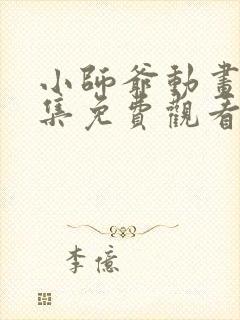 小師爺動畫
集免費觀看
李億